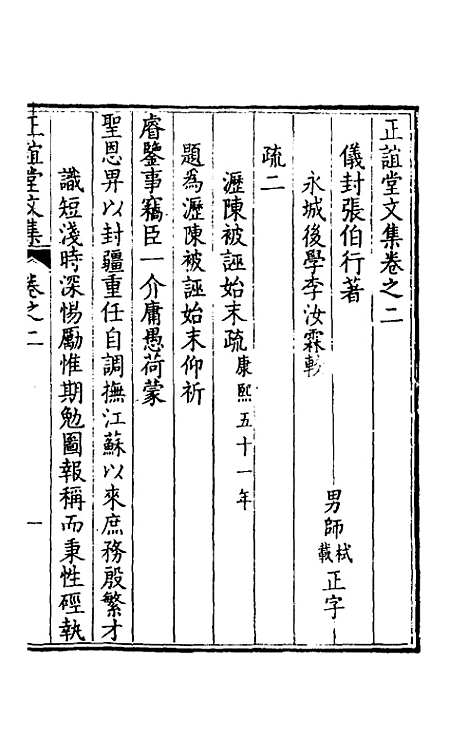 正誼堂文集卷之二
儀封張伯行著
永城後學李汝霖 男師栻載正字
疏二
瀝陳被誣始末疏康熙五十一年
題為瀝陳被誣始末仰祈
睿鑒事竊臣一介庸愚荷蒙
聖恩畀以封疆重任自調撫江蘇以來庶務殷繁才
識短淺時深惕勵惟期勉圖報稱而秉性硜執
正誼堂文集 卷之二 一